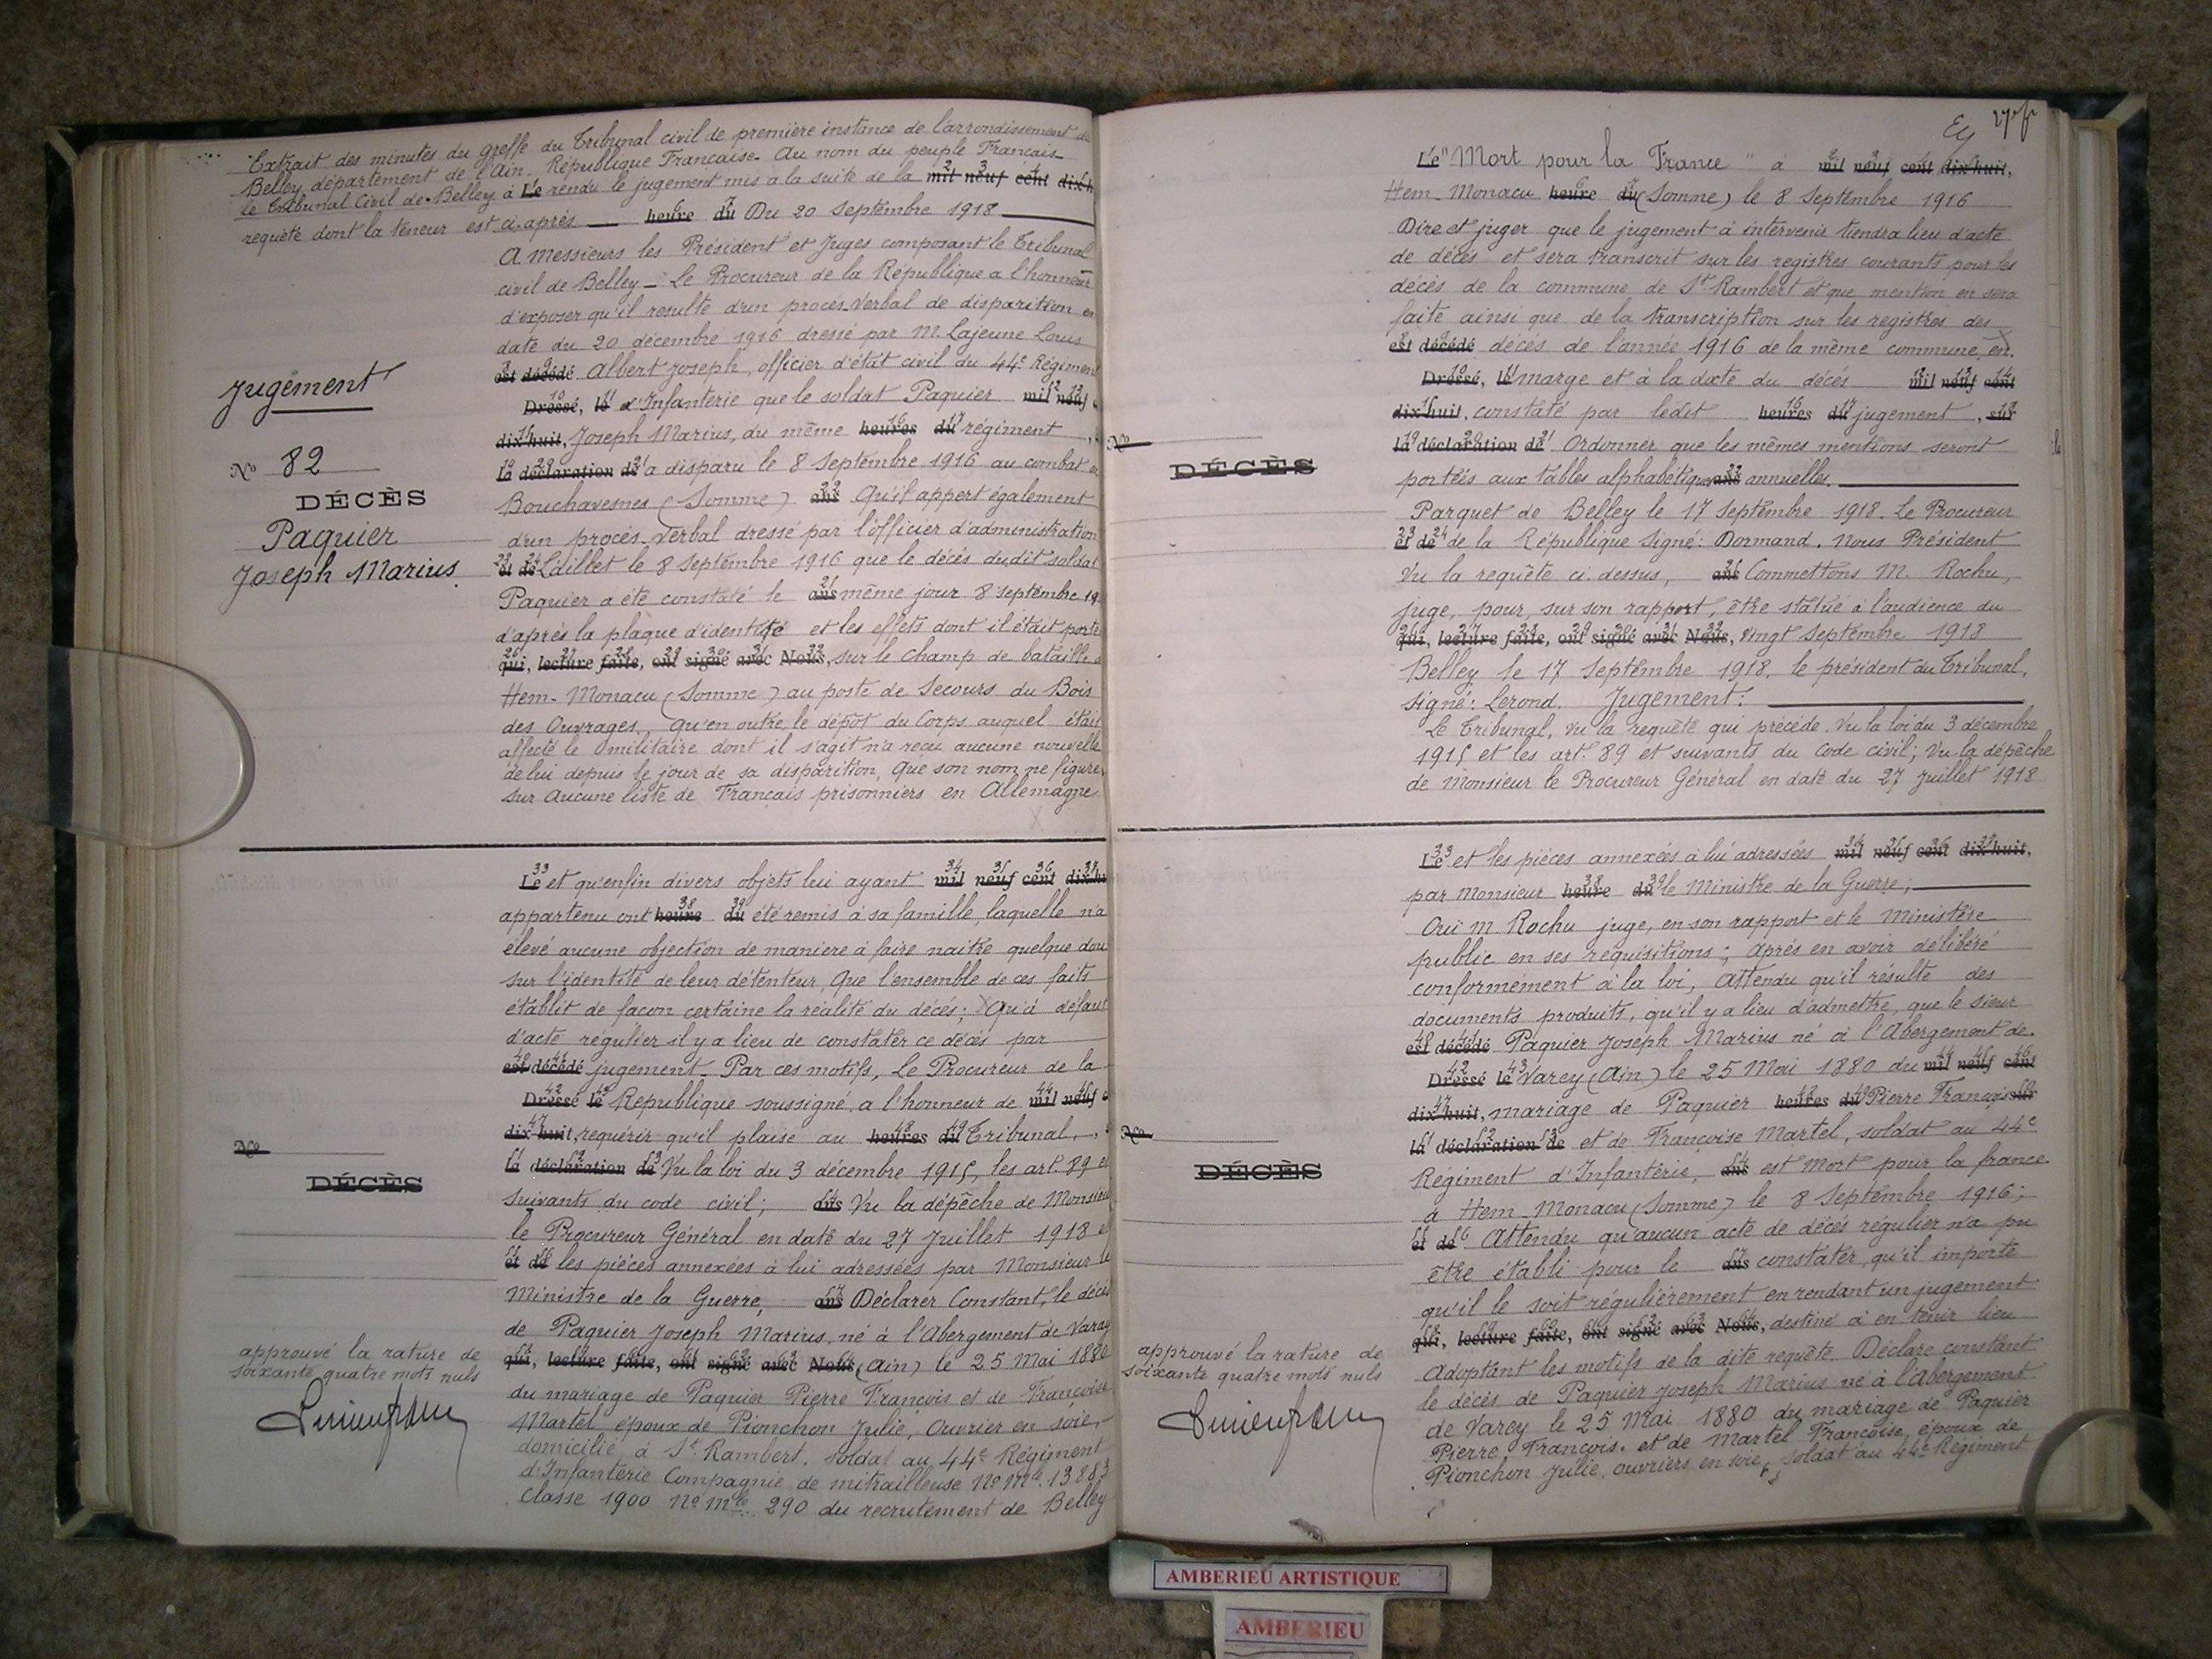 Extrait des minutes du greffe du Tribunal civil de première instance de l'arrondissement de
Belley, département de l'Ain. République Française. Au nom du peuple Français
le Tribunal Civil de Belley à Le rendu le jugement mis à la suite de la mil neuf cent dix h
requête dont la teneur est ci-après heure du Du 20 Septembre 1918
A Messieurs les Président et Juges composant le Tribunal
civil de Belley - Le Procureur de la République a l'honneur
d'exposer qu'il resulte d'un procès-Verbal de disparition en
date du 20 décembre 1916 dressé par M. Lajeune Louis
est décédé Albert Joseph, officier d'état civil du 44e Régiment
Jugement
Dressé, le d'Infanterie que le soldat Paquier mil neuf
dix huit, Joseph Marius, du même heures du régiment
No 82
la déclaration de a disparu le 8 Septembre 1916 au combat de
DÉCÈS
Bouchavesnes (Somme) ans Qu'il appert également
Paquier
d'un procès-Verbal dressé par l'officier d'administration
Joseph Marius
et de Laillet le 8 Septembre 1916 que le décès dudit soldat
Paquier a été constaté le ans même jour 8 septembre 19
d'après la plaque d'identité et les effets dont il était porte
qui, lecture faite, ont signé avec Nous, sur le champ de bataille
Hem-Monacu (Somme) au poste de Secours du Bois
des Ouvrages, Qu'en outre, le dépôt du Corps auquel était
affecté le militaire dont il s'agit n'a reçu aucune nouvelle
de lui depuis le jour de sa disparition, Que son nom ne figure
sur aucune liste de Français prisonniers en Allemagne
Le et qu'enfin divers objets lui ayant mil neuf cent dix hu
appartenu ont heure du été remis à sa famille, laquelle n'a
élevé aucune objection de maniere à faire naitre quelque dou
sur l'identité de leur détenteur, Que l'ensemble de ces faits
établit de façon certaine la réalité du décès; Qu'à défaut
d'acte régulier il y a lieu de constater ce décès par
est décédé jugement. Par ces motifs, Le Procureur de la
Dressé le Republique soussigné, a l'honneur de mil neuf c
dix huit, requérir qu'il plaise au heures du Tribunal,
No
la déclaration de Vu la loi du 3 décembre 1915, les art. 89 et
DÉCÈS
suivants du code civil; ans Vu la dépêche de Monsieur
le Procureur Général en date du 27 Juillet 1918 et
et de les pièces annexées à lui adressées par Monsieur le
Ministre de la Guerre, ans Déclarer Constant, le décès
de Paquier Joseph Marius, né à l'Abergement de Varay
qui, lecture faite, ont signé avec Nous (Ain) le 25 Mai 1880
approuvé la rature de
soixante quatre mots nuls
du mariage de Paquier Pierre François et de Françoise
Martel, époux de Pionchon Julie, Ouvrier en soie,
domicilié à St Rambert, soldat au 44e Régiment
d'Infanterie Compagnie de mitrailleuse No Mle 13883
Classe 1900 No Mle 290 du recrutement de Belley
Le "Mort pour la France" à mil neuf cent dix huit,
Hem-Monacu heure du (Somme) le 8 Septembre 1916
Dire et juger que le jugement à intervenir tiendra lieu d'acte
de décès et sera transcrit sur les registres courants pour les
décès de la commune de St Rambert et que mention en sera
faite ainsi que de la transcription sur les registres des
est décédé décès de l'année 1916 de la même commune, en
Dressé, le marge et à la date du décès mil neuf cent
dix huit, constaté par ledit heures du jugement, sur
No
la déclaration de Ordonner que les mêmes mentions seront
DÉCÈS
portées aux tables alphabétiques ans annuelles.
Parquet de Belley le 17 Septembre 1918. Le Procureur
et de de la République Signé: Dormand. Nous Président
Vu la requête ci-dessus, ans Commettons M. Rochu,
juge, pour, sur son rapport, être statué à l'audience du
qui, lecture faite, ont signé avec Nous, vingt Septembre 1918
Belley le 17 Septembre 1918. le président du Tribunal,
signé: Lerond. Jugement:
Le Tribunal, Vu la requête qui précède. Vu la loi du 3 décembre
1915 et les art. 89 et suivants du Code civil; Vu la dépêche
de Monsieur le Procureur Général en date du 27 Juillet 1918
Le et les pièces annexées à lui adressées mil neuf cent dix huit,
par Monsieur heure du le Ministre de la Guerre;
Oui M. Rochu juge, en son rapport et le Ministère
public en ses réquisitions; Après en avoir délibéré
conformément à la loi, Attendu qu'il résulte des
documents produits, qu'il y a lieu d'admettre, que le sieur
est décédé Paquier Joseph Marius né à l'Abergement de
Dressé le Varey (Ain) le 25 Mai 1880 du mil neuf cent
dix huit, mariage de Paquier heures du Pierre François sur
No
la déclaration de et de Françoise Martel, soldat au 44e
DÉCÈS
Régiment d'Infanterie, ans est Mort pour la france
à Hem-Monacu (Somme) le 8 Septembre 1916;
et de Attendu qu'aucun acte de décès régulier n'a pu
être établi pour le ans constater, qu'il importe
qu'il le soit régulièrement en rendant un jugement
qui, lecture faite, ont signé avec Nous, destiné à en tenir lieu
approuvé la rature de
soixante quatre mots nuls
Adoptant les motifs de la dite requête. Déclare constant
le décès de Paquier Joseph Marius né à l'Abergement
de Varey le 25 Mai 1880 du mariage de Paquier
Pierre François. et de Martel Françoise, époux de
Pionchon Julie, ouvriers en soie, soldat au 44e Régiment
AMBERIEU ARTISTIQUE
AMBERIEU